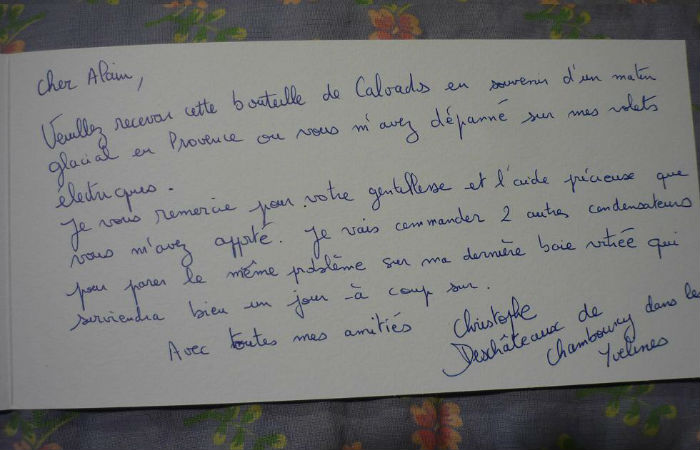 Cher Alain,
Veuillez recevoir cette bouteille de Calvados en souvenir d'un matin
glacial en Provence ou vous m'avez dépanné sur mes volets
électriques.
Je vous remercie pour votre gentillesse et l'aide précieuse que
vous m'avez apporté. Je vais commander 2 autres condensateurs
pour parer le même problème sur ma dernière baie vitrée qui
surviendra bien un jour à coup sur.
Avec toutes mes amitiés Christophe
Deschâteaux de
Chambourcy dans les
Yvelines